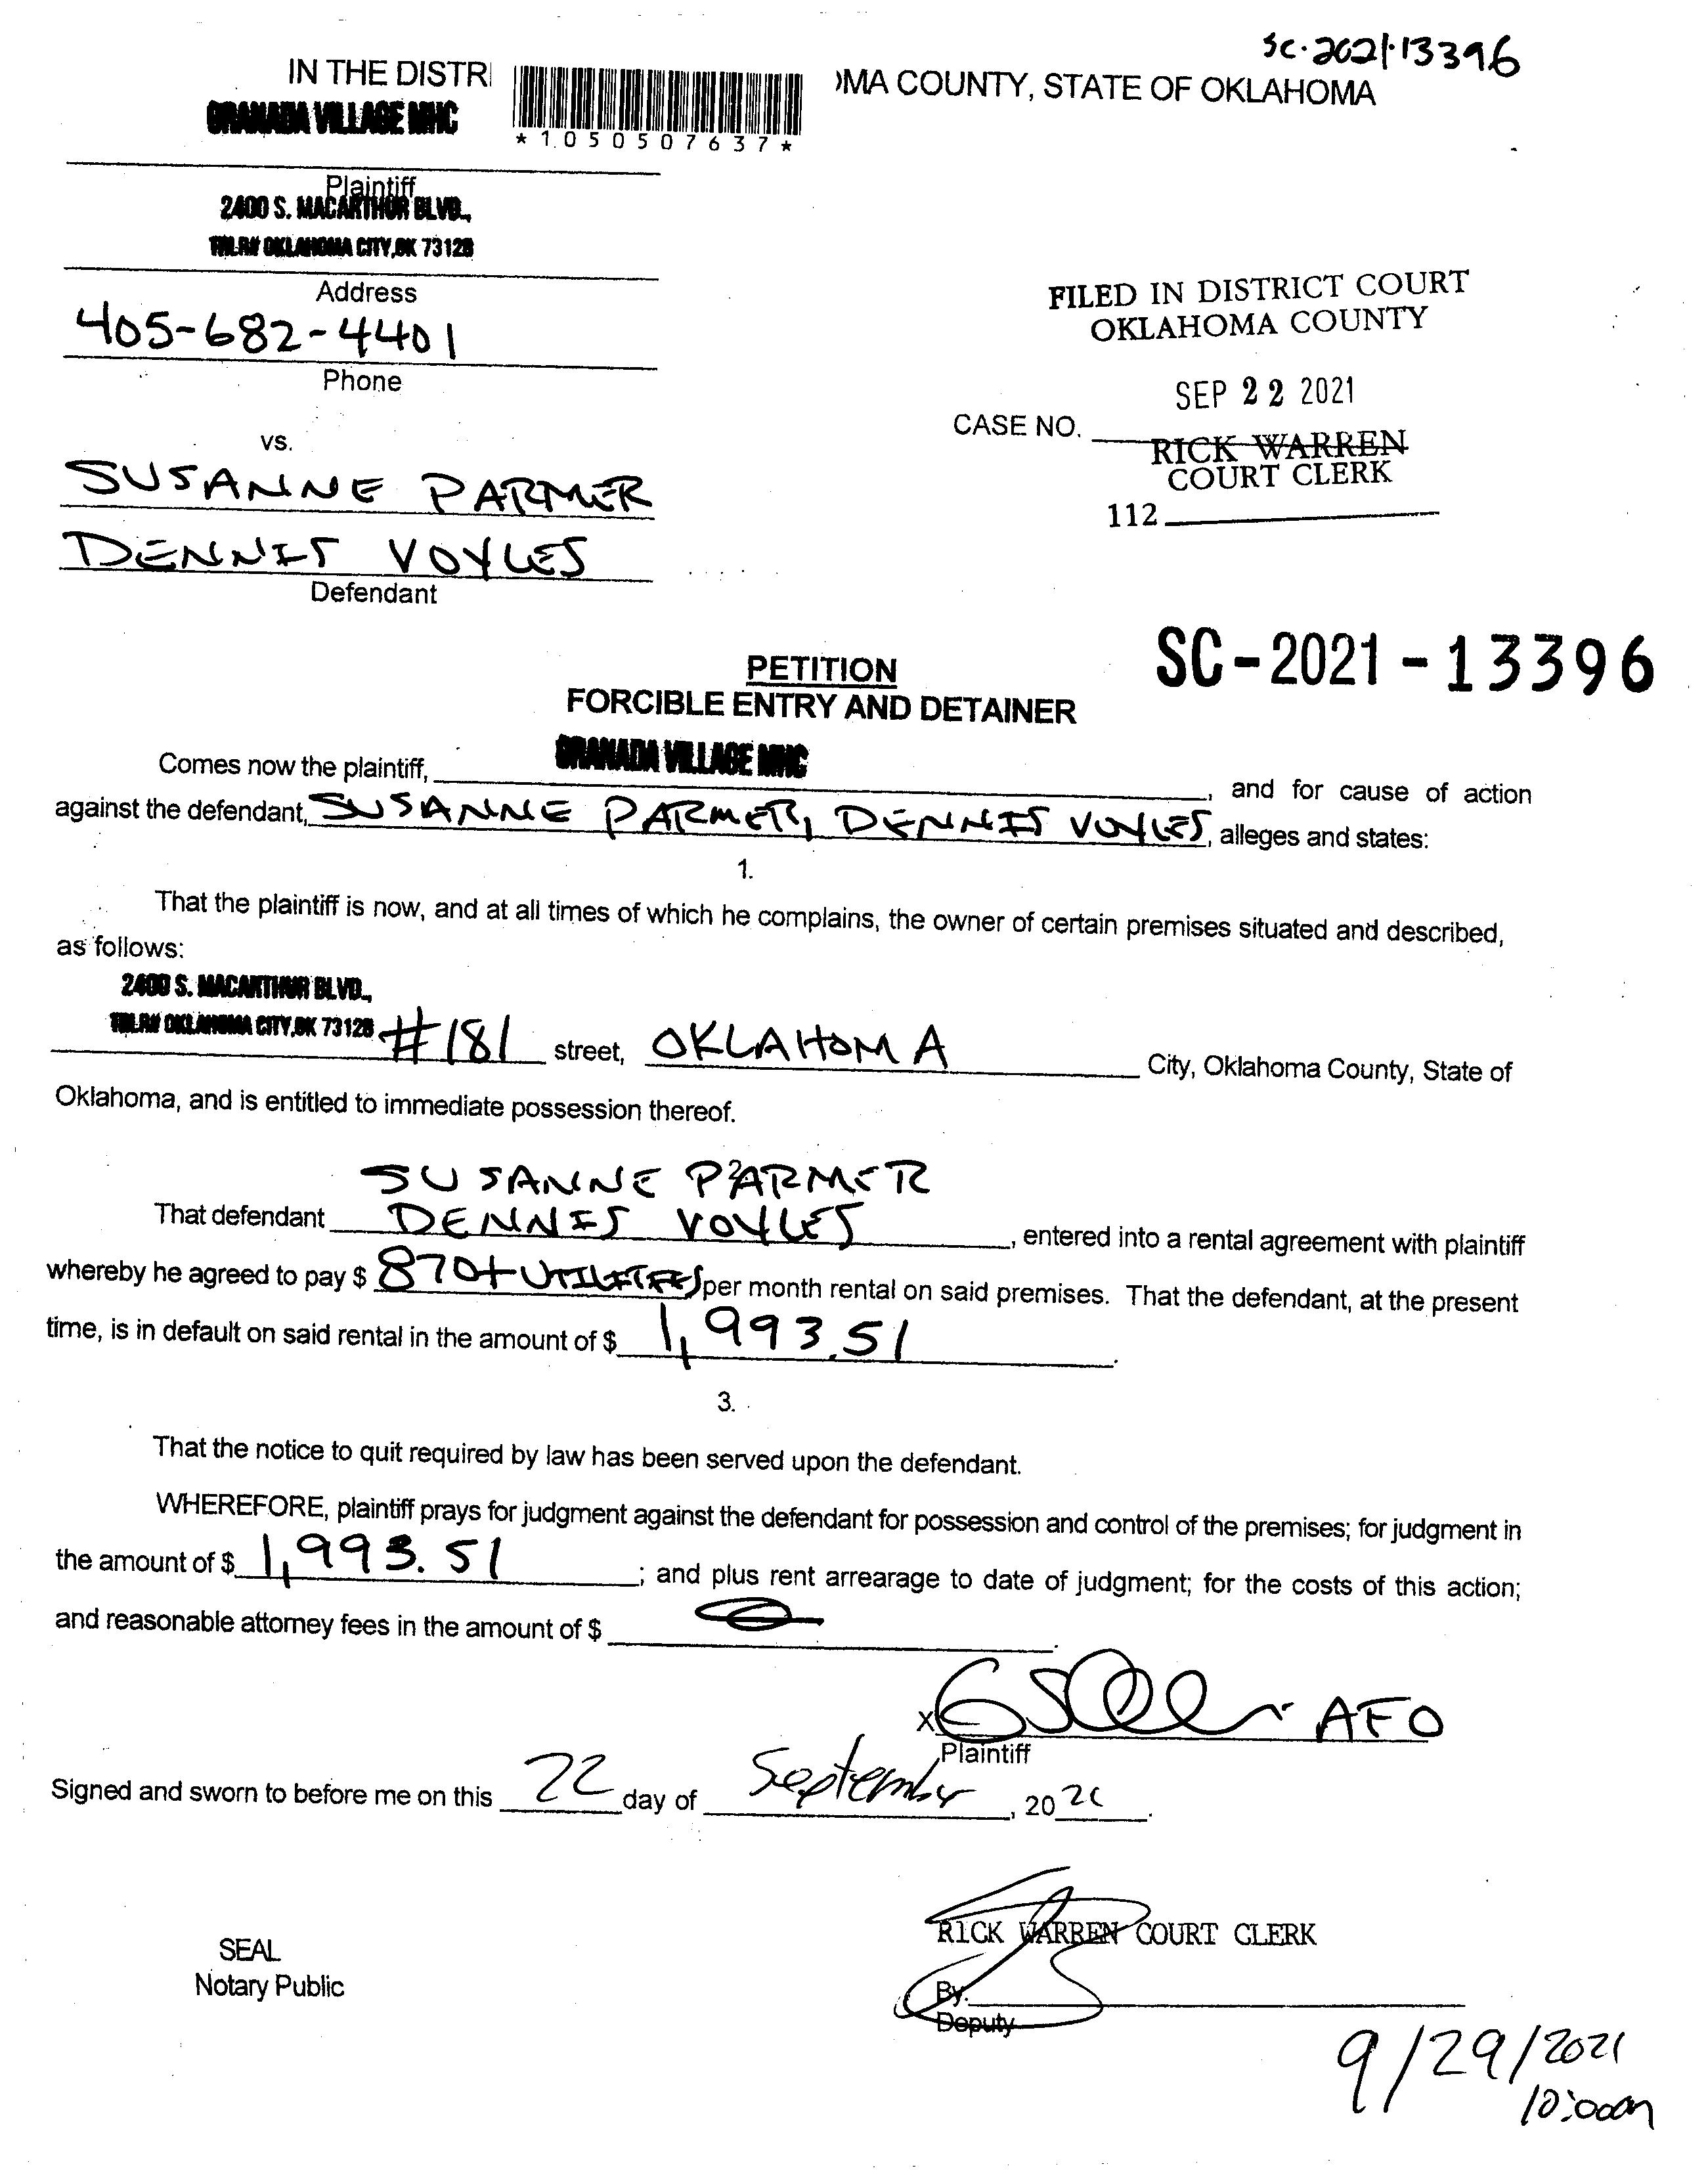 SC-2021-13396
IN THE DISTRI
OMA COUNTY, STATE OF OKLAHOMA
GRANADA VILLAGE MHC
*1050507637*
Plaintiff
2400 S. MACARTHUR BLVD.,
OKLAHOMA CITY, OK 73128
Address
405-682-4401
Phone
FILED IN DISTRICT COURT
OKLAHOMA COUNTY
SEP 22 2021
CASE NO.
RICK WARREN
COURT CLERK
112
vs.
SUSANNE PARMER
DENNIS VOYLES
Defendant
SC-2021-13396
PETITION
FORCIBLE ENTRY AND DETAINER
Comes now the plaintiff, GRANADA VILLAGE MHC, and for cause of action
against the defendant, SUSANNE PARMER, DENNIS VOYLES, alleges and states:
1.
That the plaintiff is now, and at all times of which he complains, the owner of certain premises situated and described,
as follows:
2400 S. MACARTHUR BLVD.,
OKLAHOMA CITY, OK 73128 #181 street, OKLAHOMA City, Oklahoma County, State of
Oklahoma, and is entitled to immediate possession thereof.
2
SUSANNE PARMER
That defendant DENNIS VOYLES, entered into a rental agreement with plaintiff
whereby he agreed to pay $ 870 + UTILITIES per month rental on said premises. That the defendant, at the present
time, is in default on said rental in the amount of $ 1,993.51.
3.
That the notice to quit required by law has been served upon the defendant.
WHEREFORE, plaintiff prays for judgment against the defendant for possession and control of the premises; for judgment in
the amount of $ 1,993.51; and plus rent arrearage to date of judgment; for the costs of this action;
and reasonable attorney fees in the amount of $
X AFO
Plaintiff
Signed and sworn to before me on this 22 day of September, 2021.
RICK WARREN COURT CLERK
SEAL
Notary Public
By.
Deputy
9/29/2021
10:00am